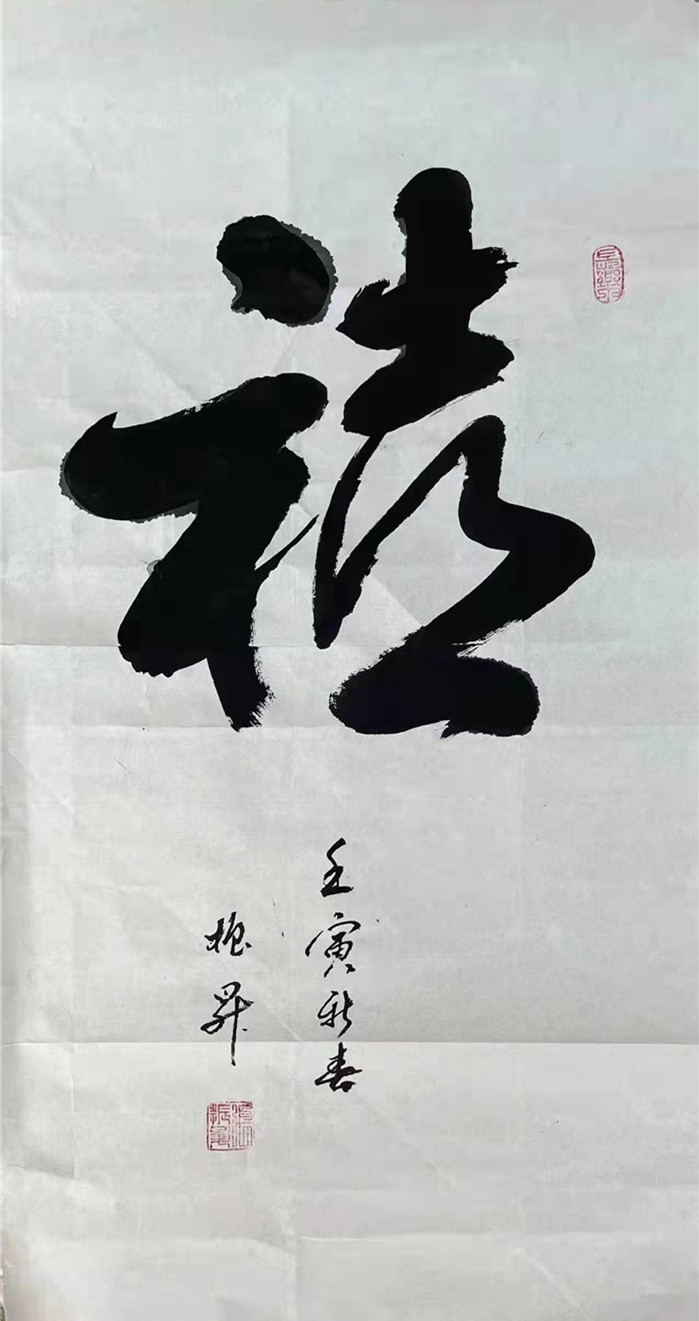 禧
壬寅新春
振昇